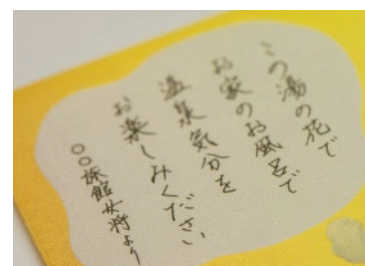 この湯の花で
お家のお風呂で
温泉気分を
お楽しみください
○○旅館女将より